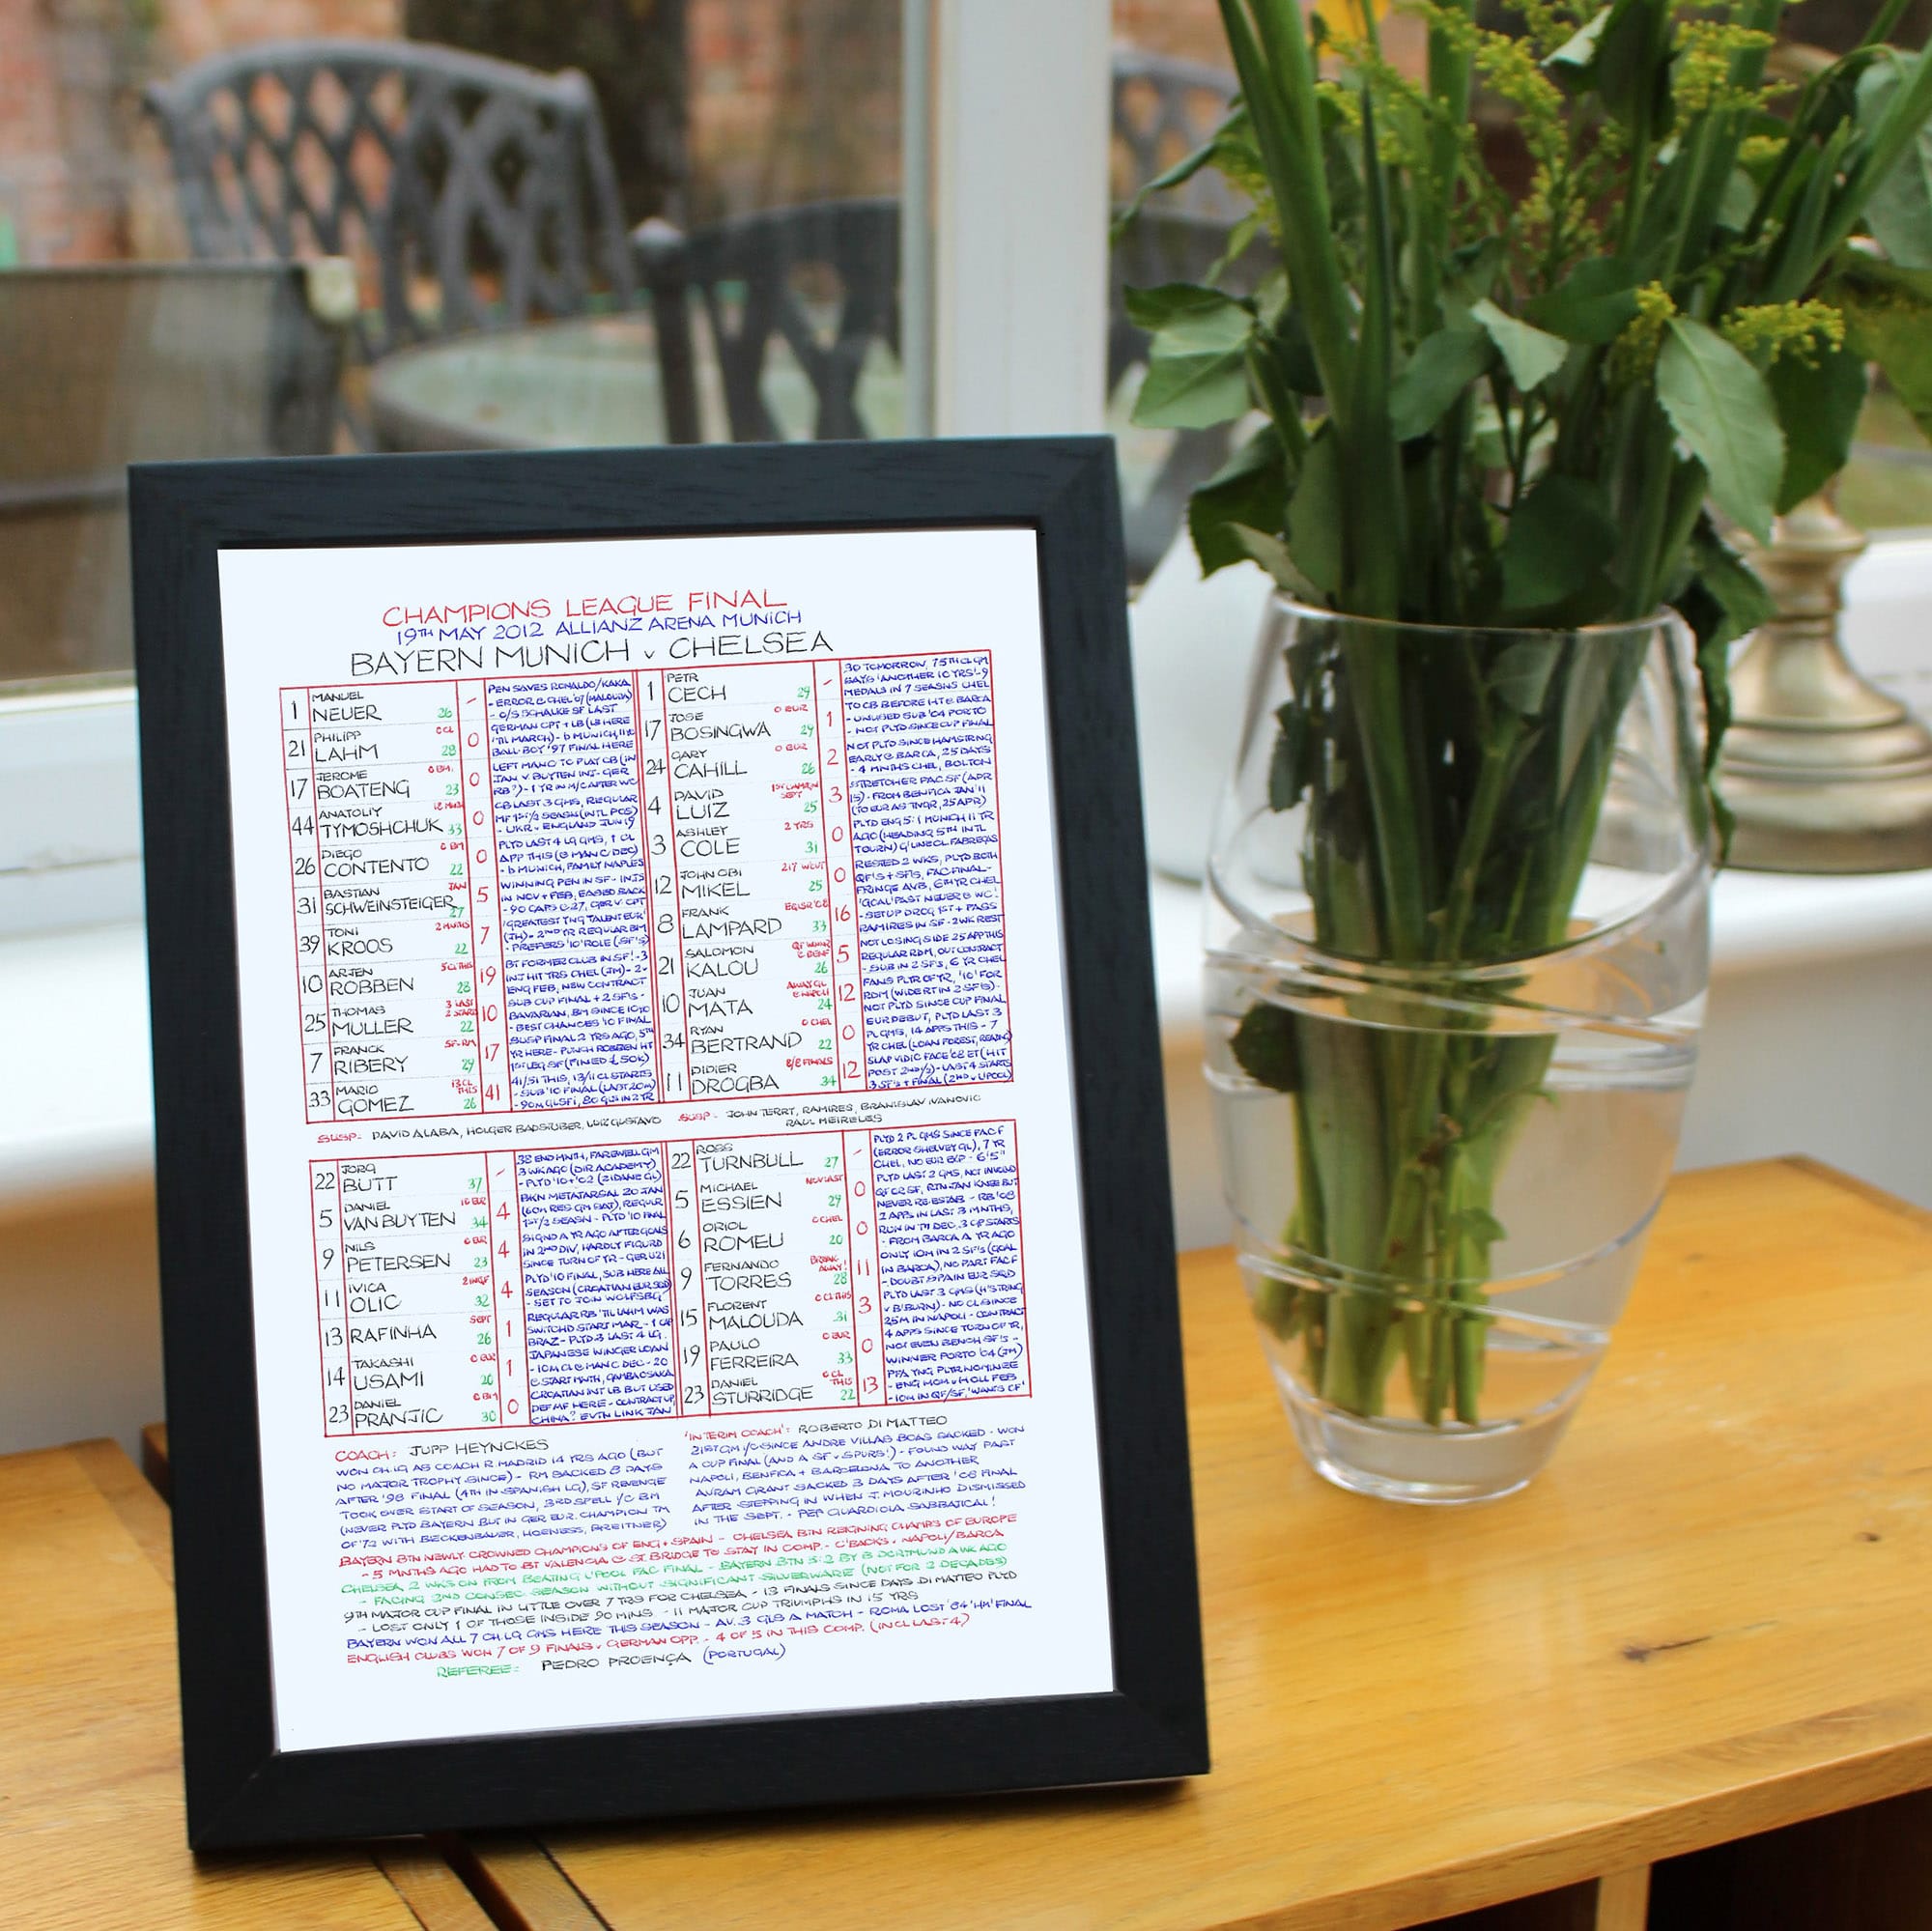 CHAMPIONS LEAGUE FINAL
19TH MAY 2012 ALLIANZ ARENA MUNICH
BAYERN MUNICH v CHELSEA
1 MANUEL NEUER 26 -
PEN SAVES RONALDO/KAKA
- ERROR @ CHEL '07 (MALOUDA)
- O/S SCHALKE SF LAST
21 PHILIPP LAHM 0 CL 28 0
GERMAN CPT + LB (LB HERE
'TIL MARCH) - b MUNICH,
BALL BOY '97 FINAL HERE
17 JEROME BOATENG 0 BM. 23 0
LEFT MANC TO PLAY CB (IN
JAN V. BUYTEN INJ - GER
RB?) - 1 YR IN M/C AFTER WC
44 ANATOLIY TYMOSHCHUK 33 0
CB LAST 3 GMS, REGULAR
MF 1ST 1/2 SEASN (INTL POS)
- UKR v ENGLAND JUN 19
26 DIEGO CONTENTO 0 BM 22 0
PLYD LAST 4 LG GMS, 1 CL
APP THIS (@ MAN C DEC)
- b MUNICH, FAMILY NAPLES
31 BASTIAN SCHWEINSTEIGER JAN 27 5
WINNING PEN IN SF - INJS
IN NOV + FEB, EASED BACK
- 90 CAPS @ 27, GER V. CPT
39 TONI KROOS 2 MNTHS 22 7
'GREATEST YNG TALENT EUR'
(JH) - 2ND YR REGULAR BM
- PREFERS '10' ROLE (SF'S)
10 ARJEN ROBBEN 5 CL THIS 28 19
BT FORMER CLUB IN SF! - 3
INJ HIT YRS CHEL (JM) - 2 v
ENG FEB, NEW CONTRACT
25 THOMAS MULLER 3 LAST 2 STARTS 22 10
SUB CUP FINAL + 2 SF'S -
BAVARIAN, BM SINCE 10YO
- BEST CHANCES '10 FINAL
7 FRANCK RIBERY SF-RM 29 17
SUSP FINAL 2 YRS AGO, 5TH
YR HERE - PUNCH ROBBEN HT
1ST LEG SF (FINED £50K)
33 MARIO GOMEZ 13 CL THIS 26 41
41/51 THIS, 13/11 CL STARTS
- SUB '10 FINAL (LAST 20M)
- 90M GL SF1, 80 GLS IN 2 YR
1 PETR CECH 29 -
30 TOMORROW, 75TH CL GM
SAYS 'ANOTHER 10 YRS' - 9
MEDALS IN 7 SEASNS CHEL
17 JOSE BOSINGWA 0 EUR 29 1
TO CB BEFORE HT @ BARCA
- UNUSED SUB '04 PORTO
- NOT PLYD SINCE CUP FINAL
24 GARY CAHILL 0 EUR 26 2
NOT PLYD SINCE HAMSTRNG
EARLY @ BARCA, 25 DAYS
- 4 MNTHS CHEL, BOLTON
4 DAVID LUIZ SEPT 25 3
STRETCHER FAC SF (APR
15) - FROM BENFICA JAN '11
(TO EUR AS TWGR, 25 APR)
3 ASHLEY COLE 2 YRS 31 0
PLYD ENG 5:1 MUNICH 11 YR
AGO (HEADING 5TH INTL
TOURN) G'LINE CL FABREGAS
12 JOHN OBI MIKEL 25 0
RESTED 2 WKS, PLYD BOTH
QF'S + SF'S, FAC FINAL -
FRINGE AVB, 6TH YR CHEL
8 FRANK LAMPARD 33 16
'GOAL' PAST NEUER @ WC
- SET UP DROG 1ST + PASS
RAMIRES IN SF - 2 WK REST
21 SALOMON KALOU QF WINNR @ BENF 26 5
NOT LOSING SIDE 25 APP THIS
REGULAR RDM, OUT CONTRACT
- SUB IN 2 SF'S, 6 YR CHEL
10 JUAN MATA AWAY GL @ NAPOLI 24 12
FANS PLYR OF YR, '10' FOR
RDM (WIDE RT IN 2 SF'S) -
NOT PLYD SINCE CUP FINAL
34 RYAN BERTRAND 0 CHEL 22 0
EUR DEBUT, PLYD LAST 3
PL GMS, 14 APPS THIS - 7
YR CHEL (LOAN FOREST, READNG)
11 DIDIER DROGBA 8/8 FINALS 34 12
SLAP VIDIC FACE '08 ET (HIT
POST 2ND 1/2) - LAST 4 STARTS
3 SF'S + FINAL (2ND v L'POOL)
SUSP - DAVID ALABA, HOLGER BADSTUBER, LUIZ GUSTAVO
SUSP - JOHN TERRY, RAMIRES, BRANISLAV IVANOVIC
RAUL MEIRELES
22 JORG BUTT 37 -
38 END MNTH, FAREWELL GM
3 WK AGO (DIR ACADEMY)
- PLYD '10 + '02 (ZIDANE GL)
5 DANIEL VAN BUYTEN 16 EUR 34 4
BKN METATARSAL 20 JAN
(60M RES GM SAT), REGULR
1ST 1/2 SEASN - PLYD '10 FINAL
9 NILS PETERSEN 0 EUR 23 4
SIGND A YR AGO AFTER GOALS
IN 2ND DIV, HARDLY FIGURD
SINCE TURN OF YR - GER U21
11 IVICA OLIC 32 4
PLYD '10 FINAL, SUB HERE ALL
SEASON (CROATIAN EUR SQD)
- SET TO JOIN WOLFSBG
13 RAFINHA SEPT 26 1
REGULAR RB 'TIL LAHM WAS
SWITCHD START MAR - 1 CAP
BRAZ - PLYD 3 LAST 4 LG.
14 TAKASHI USAMI 0 EUR 20 1
JAPANESE WINGER LOAN
- 10M CL @ MAN C DEC - 20
@ START MNTH, GAMBA OSAKA
23 DANIEL PRANJIC 0 BM 30 0
CROATIAN INT LB BUT USED
DEF MF HERE - CONTRACT UP,
CHINA? EVTN LINK JAN
22 ROSS TURNBULL 27 -
PLYD 2 PL GMS SINCE FAC F
(ERROR SHELVEY GL), 7 YR
CHEL, NO EUR EXP - 6'5"
5 MICHAEL ESSIEN NOV LAST 29 0
PLYD LAST 2 GMS, NOT INVOLVD
QF OR SF, RTN JAN KNEE BUT
NEVER RE-ESTAB - RB '08
6 ORIOL ROMEU 0 CHEL 20 0
2 APPS IN LAST 3 MNTHS,
RUN IN TM DEC, 3 GP STARTS
- FROM BARCA A YR AGO
9 FERNANDO TORRES BREAK AWAY! 28 11
ONLY 10M IN 2 SF'S (GOAL
IN BARCA), NO PART FAC F
- DOUBT SPAIN EUR SQD
15 FLORENT MALOUDA 0 CL THIS 31 3
PLYD LAST 3 GMS (H'STRING
v B'BURN) - NO CL SINCE
25M IN NAPOLI - CONTRACT
19 PAULO FERREIRA 0 EUR 33 0
4 APPS SINCE TURN OF YR,
NOT EVEN BENCH SF'S -
WINNER PORTO '04 (JM)
23 DANIEL STURRIDGE 0 CL THIS 22 13
PFA YNG PLYR NOMINEE
- ENG HOM v HOLL FEB
- 10M IN QF/SF, 'WANTS CF'
COACH: JUPP HEYNCKES
WON CH. LG AS COACH R. MADRID 14 YRS AGO (BUT
NO MAJOR TROPHY SINCE) - RM SACKED 8 DAYS
AFTER '98 FINAL (4TH IN SPANISH LG), SF REVENGE
TOOK OVER START OF SEASON, 3RD SPELL I/C BM
(NEVER PLYD BAYERN BUT IN GER EUR. CHAMPION TM
OF '72 WITH BECKENBAUER, HOENESS, BREITNER)
'INTERIM COACH': ROBERTO DI MATTEO
21ST GM I/C SINCE ANDRE VILLAS BOAS SACKED - WON
A CUP FINAL (AND A SF v SPURS!) - FOUND WAY PAST
NAPOLI, BENFICA + BARCELONA TO ANOTHER
AVRAM GRANT SACKED 3 DAYS AFTER '08 FINAL
AFTER STEPPING IN WHEN J. MOURINHO DISMISSED
IN THE SEPT. - PEP GUARDIOLA SABBATICAL!
BAYERN BTN NEWLY CROWNED CHAMPIONS OF ENG + SPAIN - CHELSEA BTN REIGNING CHAMPS OF EUROPE
- 5 MNTHS AGO HAD TO BT VALENCIA @ ST. BRIDGE TO STAY IN COMP. - C'BACKS v NAPOLI/BARCA
CHELSEA 2 WKS ON FROM BEATING L'POOL FAC FINAL - BAYERN BTN 5:2 BY B DORTMUND A WK AGO
- FACING 2ND CONSEC SEASON WITHOUT SIGNIFICANT SILVERWARE (NOT FOR 2 DECADES)
9TH MAJOR CUP FINAL IN LITTLE OVER 7 YRS FOR CHELSEA - 13 FINALS SINCE DAYS DI MATTEO PLYD
- LOST ONLY 1 OF THOSE INSIDE 90 MINS - 11 MAJOR CUP TRIUMPHS IN 15 YRS
BAYERN WON ALL 7 CH. LG GMS HERE THIS SEASON - AV. 3 GLS A MATCH - ROMA LOST '84 'HM' FINAL
ENGLISH CLUBS WON 7 OF 9 FINALS v GERMAN OPP. - 4 OF 5 IN THIS COMP. (INCL LAST 4)
REFEREE: PEDRO PROENÇA (PORTUGAL)